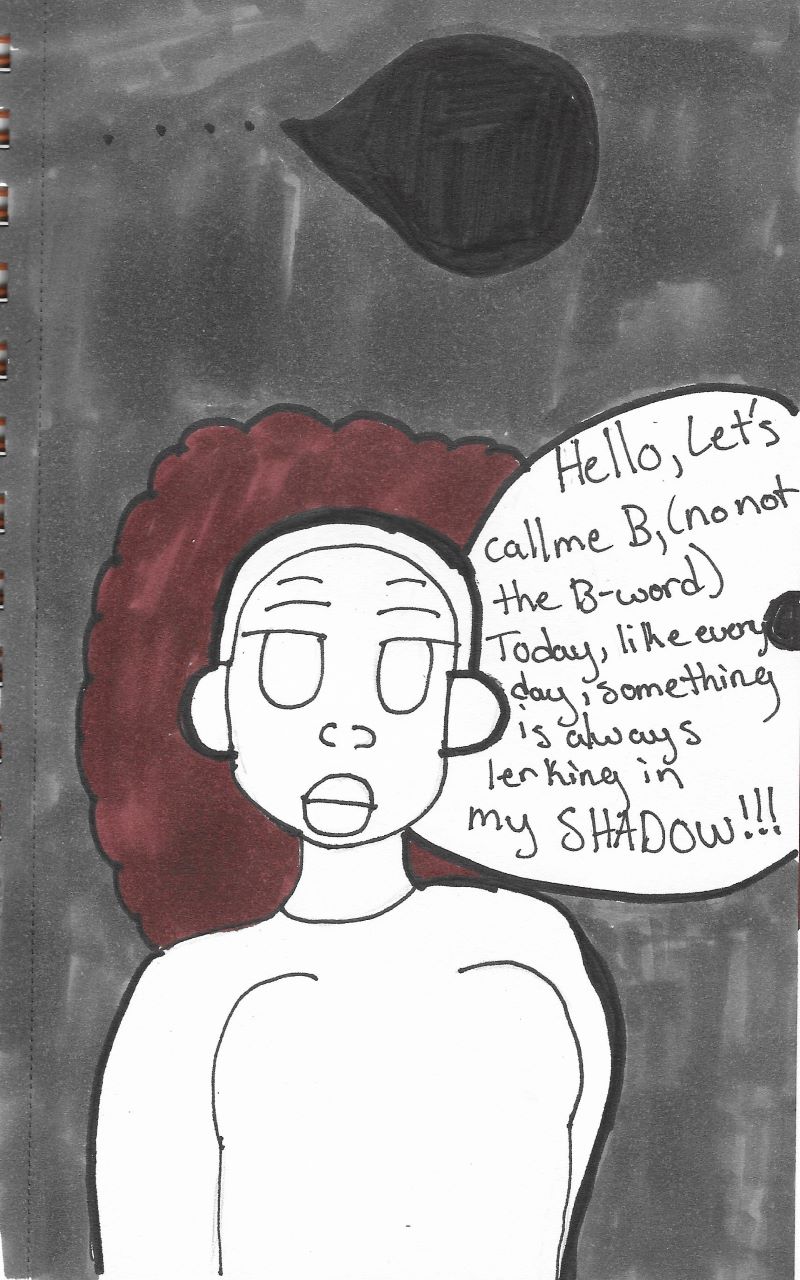 Hello, Let's
call me B, (no not
the B-word)
Today, like every
day, something
is always
lerking in
my SHADOW!!!